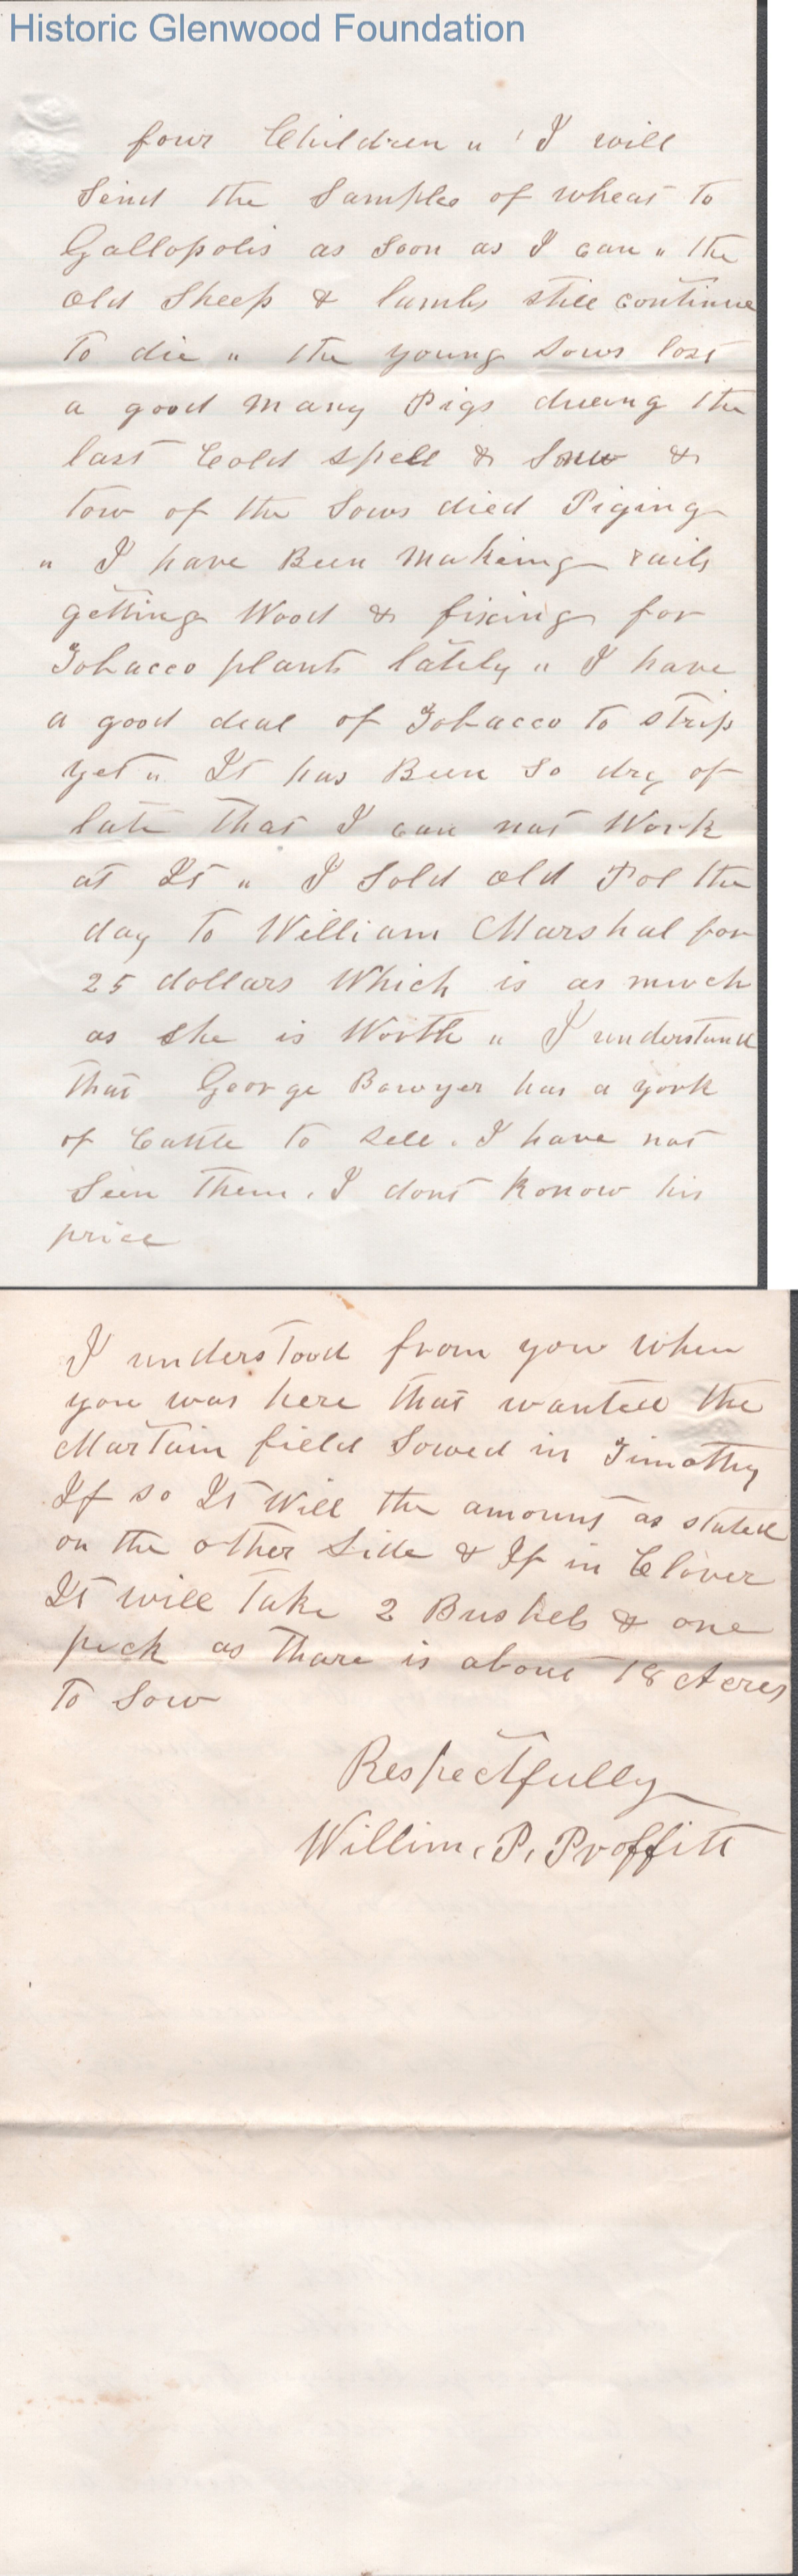 Historic Glenwood Foundation
four Children " I will
Send the Samples of wheat to
Gallopolis as Soon as I can " the
old Sheep & lambs still continue
to die " the young Sows lost
a good many Pigs dueing the
last Cold spell & Snow &
tow of the Sows died Piging
" I have Been Makeing rails
getting Wood & fixing for
Tobacco plants lately " I have
a good deal of Tobacco to strip
yet " It has Been so dry of
late that I can not Work
at It " I Sold old Pol the
day to William Marshal for
25 dollars Which is as much
as she is Worth " I understand
that George Bowyer has a york
of Cattle to sell. I have not
Seen them. I dont Konow his
price
I understood from you when
you was here that wanted the
Martain field Sowed in Timothy
If so It Will the amount as stated
on the other Side & If in Clover
It will take 2 Bushels & one
peck as thare is about 18 Acres
to Sow
Respectfully
Willim. P. Proffitt